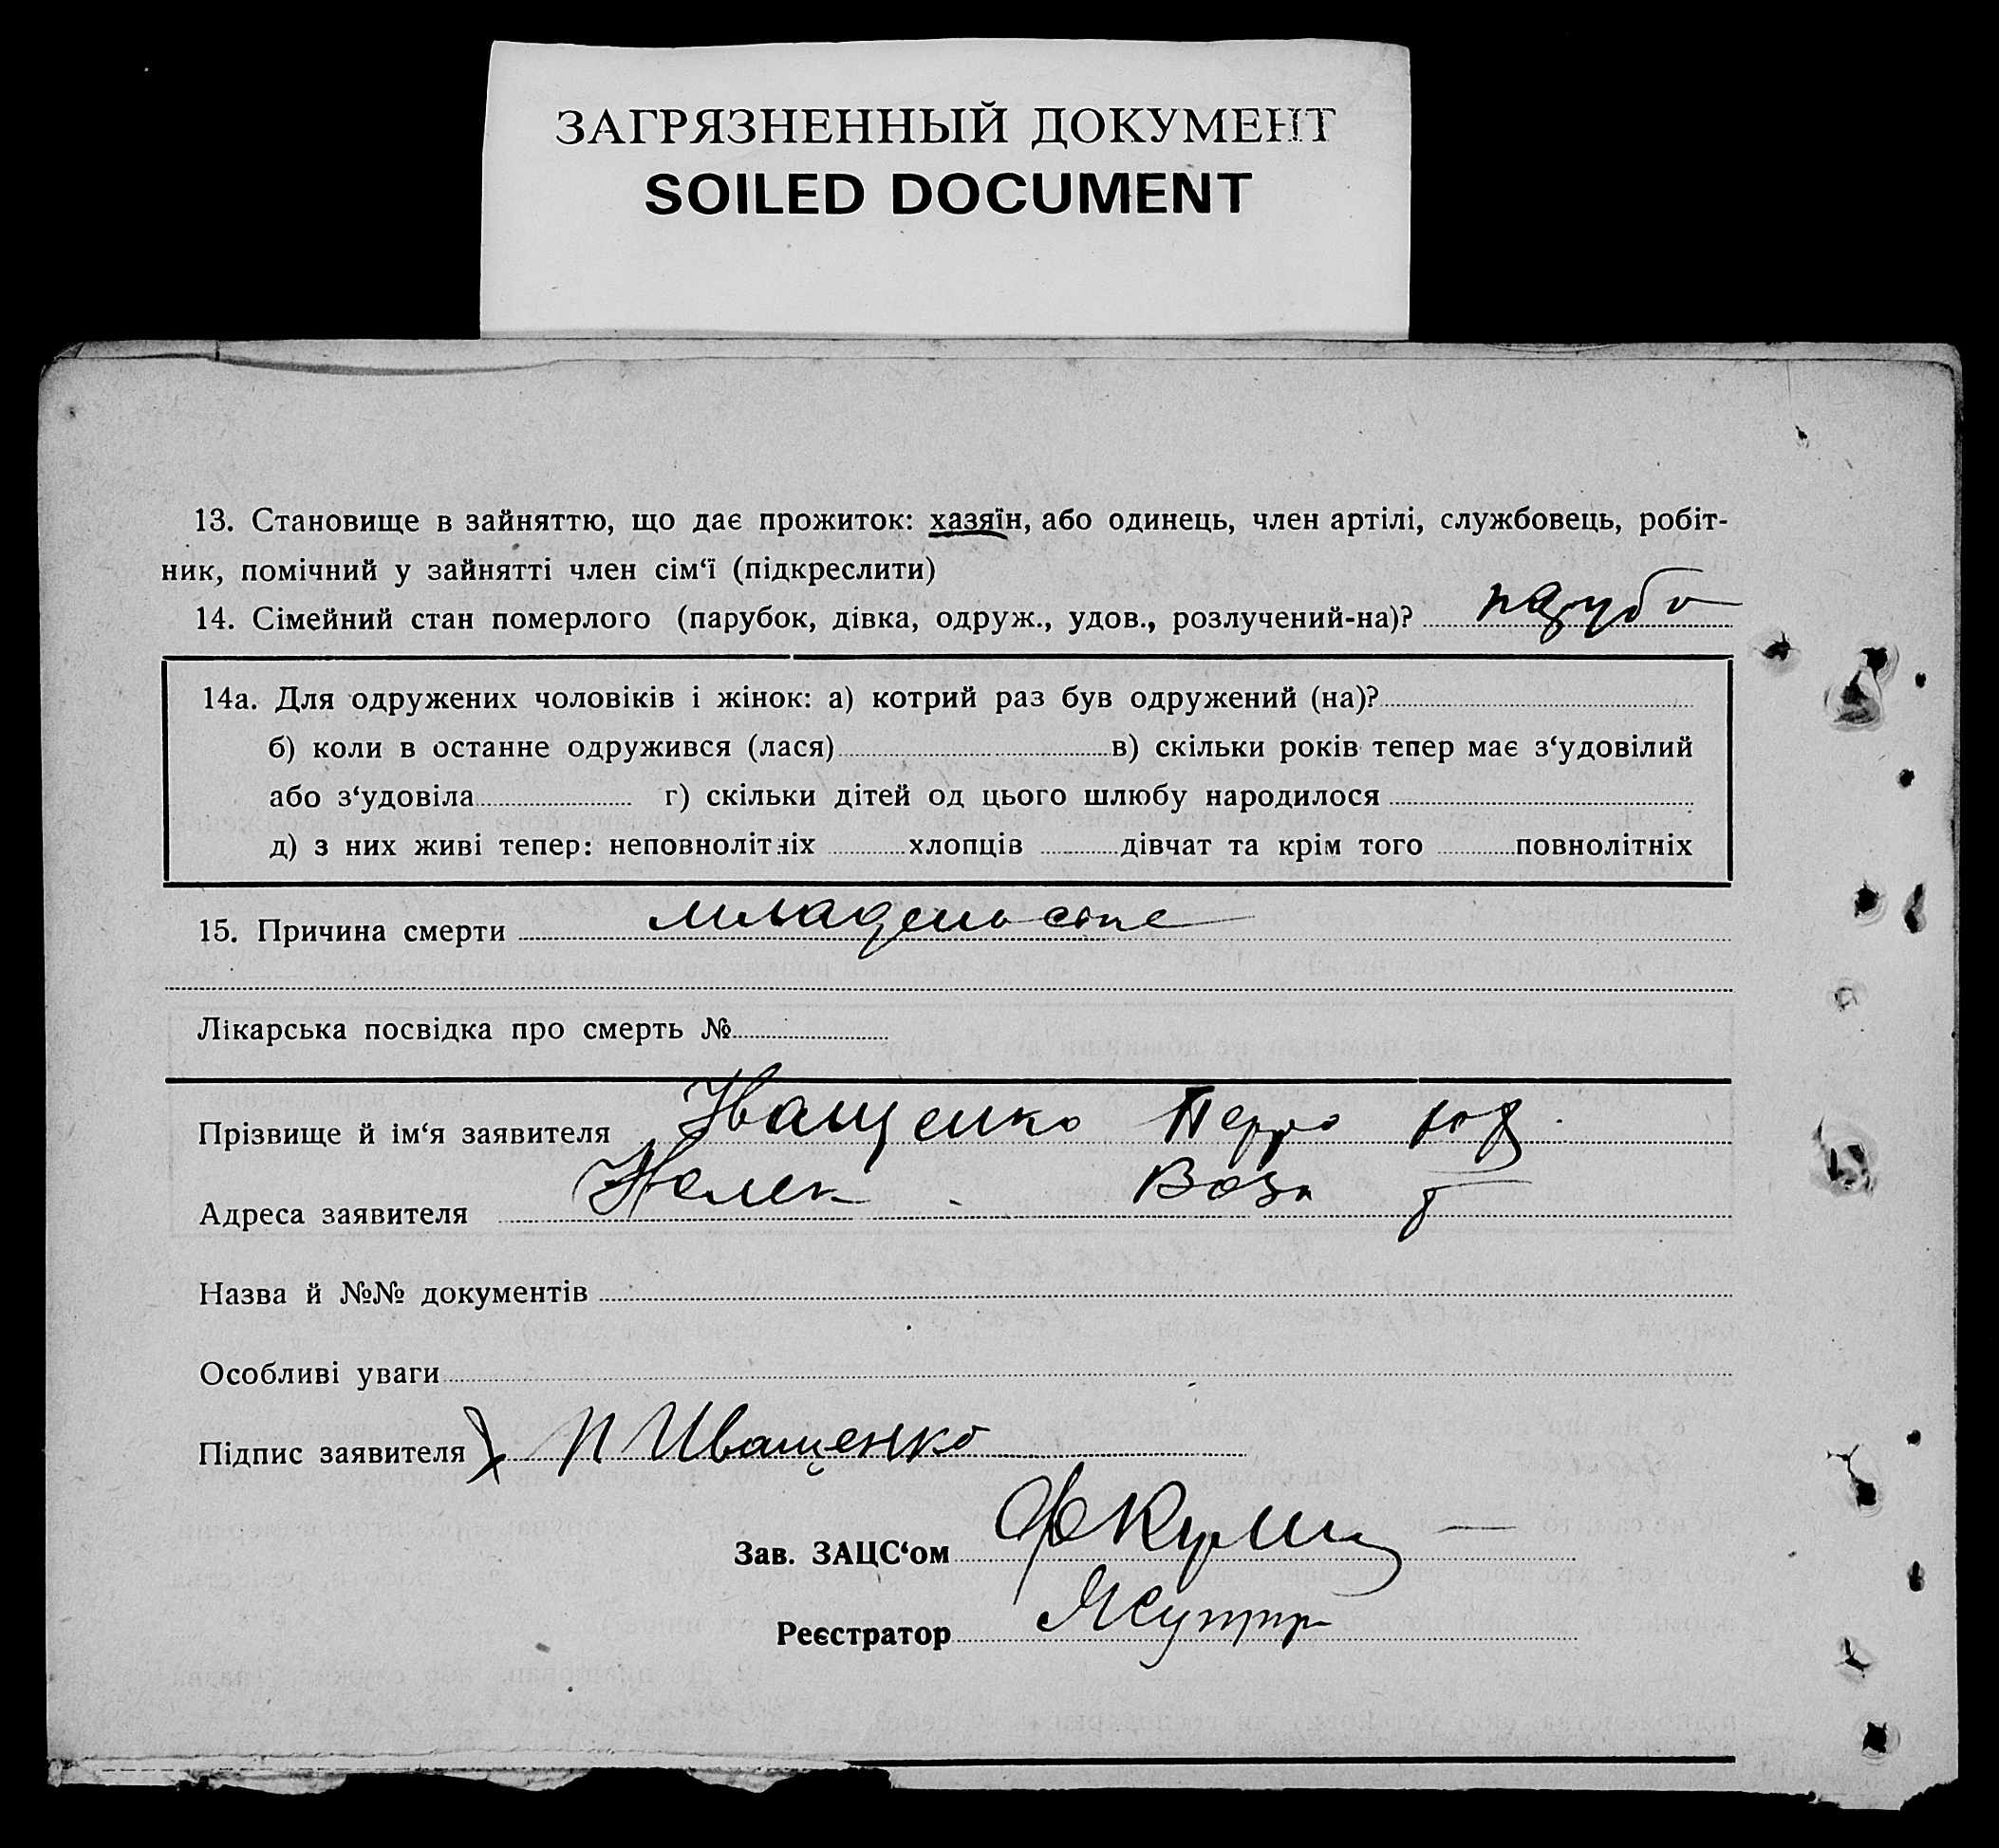 ЗАГРЯЗНЕННЫЙ ДОКУМЕНТ
SOILED DOCUMENT
13. Становище в зайняттю, що дає прожиток: хазяїн, або одинець, член артілі, службовець, робіт-
ник, помічний у зайнятті член сім‘ї (підкреслити)
14. Сімейний стан померлого (парубок, дівка, одруж., удов., розлучений-на)? парубо
14а. Для одружених чоловіків і жінок: а) котрий раз був одружений (на)?
б) коли в останнє одружився (лася) в) скільки років тепер має з‘удовілий
або з‘удовіла г) скільки дітей од цього шлюбу народилося
д) з них живі тепер: неповнолітніх хлопців дівчат та крім того повнолітніх
15. Причина смерти
Лікарська посвідка про смерть №
Прізвище й ім‘я заявителя Іващенко
Адреса заявителя
Назва й №№ документів
Особливі уваги
Підпис заявителя П Иващенко
Зав. ЗАЦС‘ом
Реєстратор